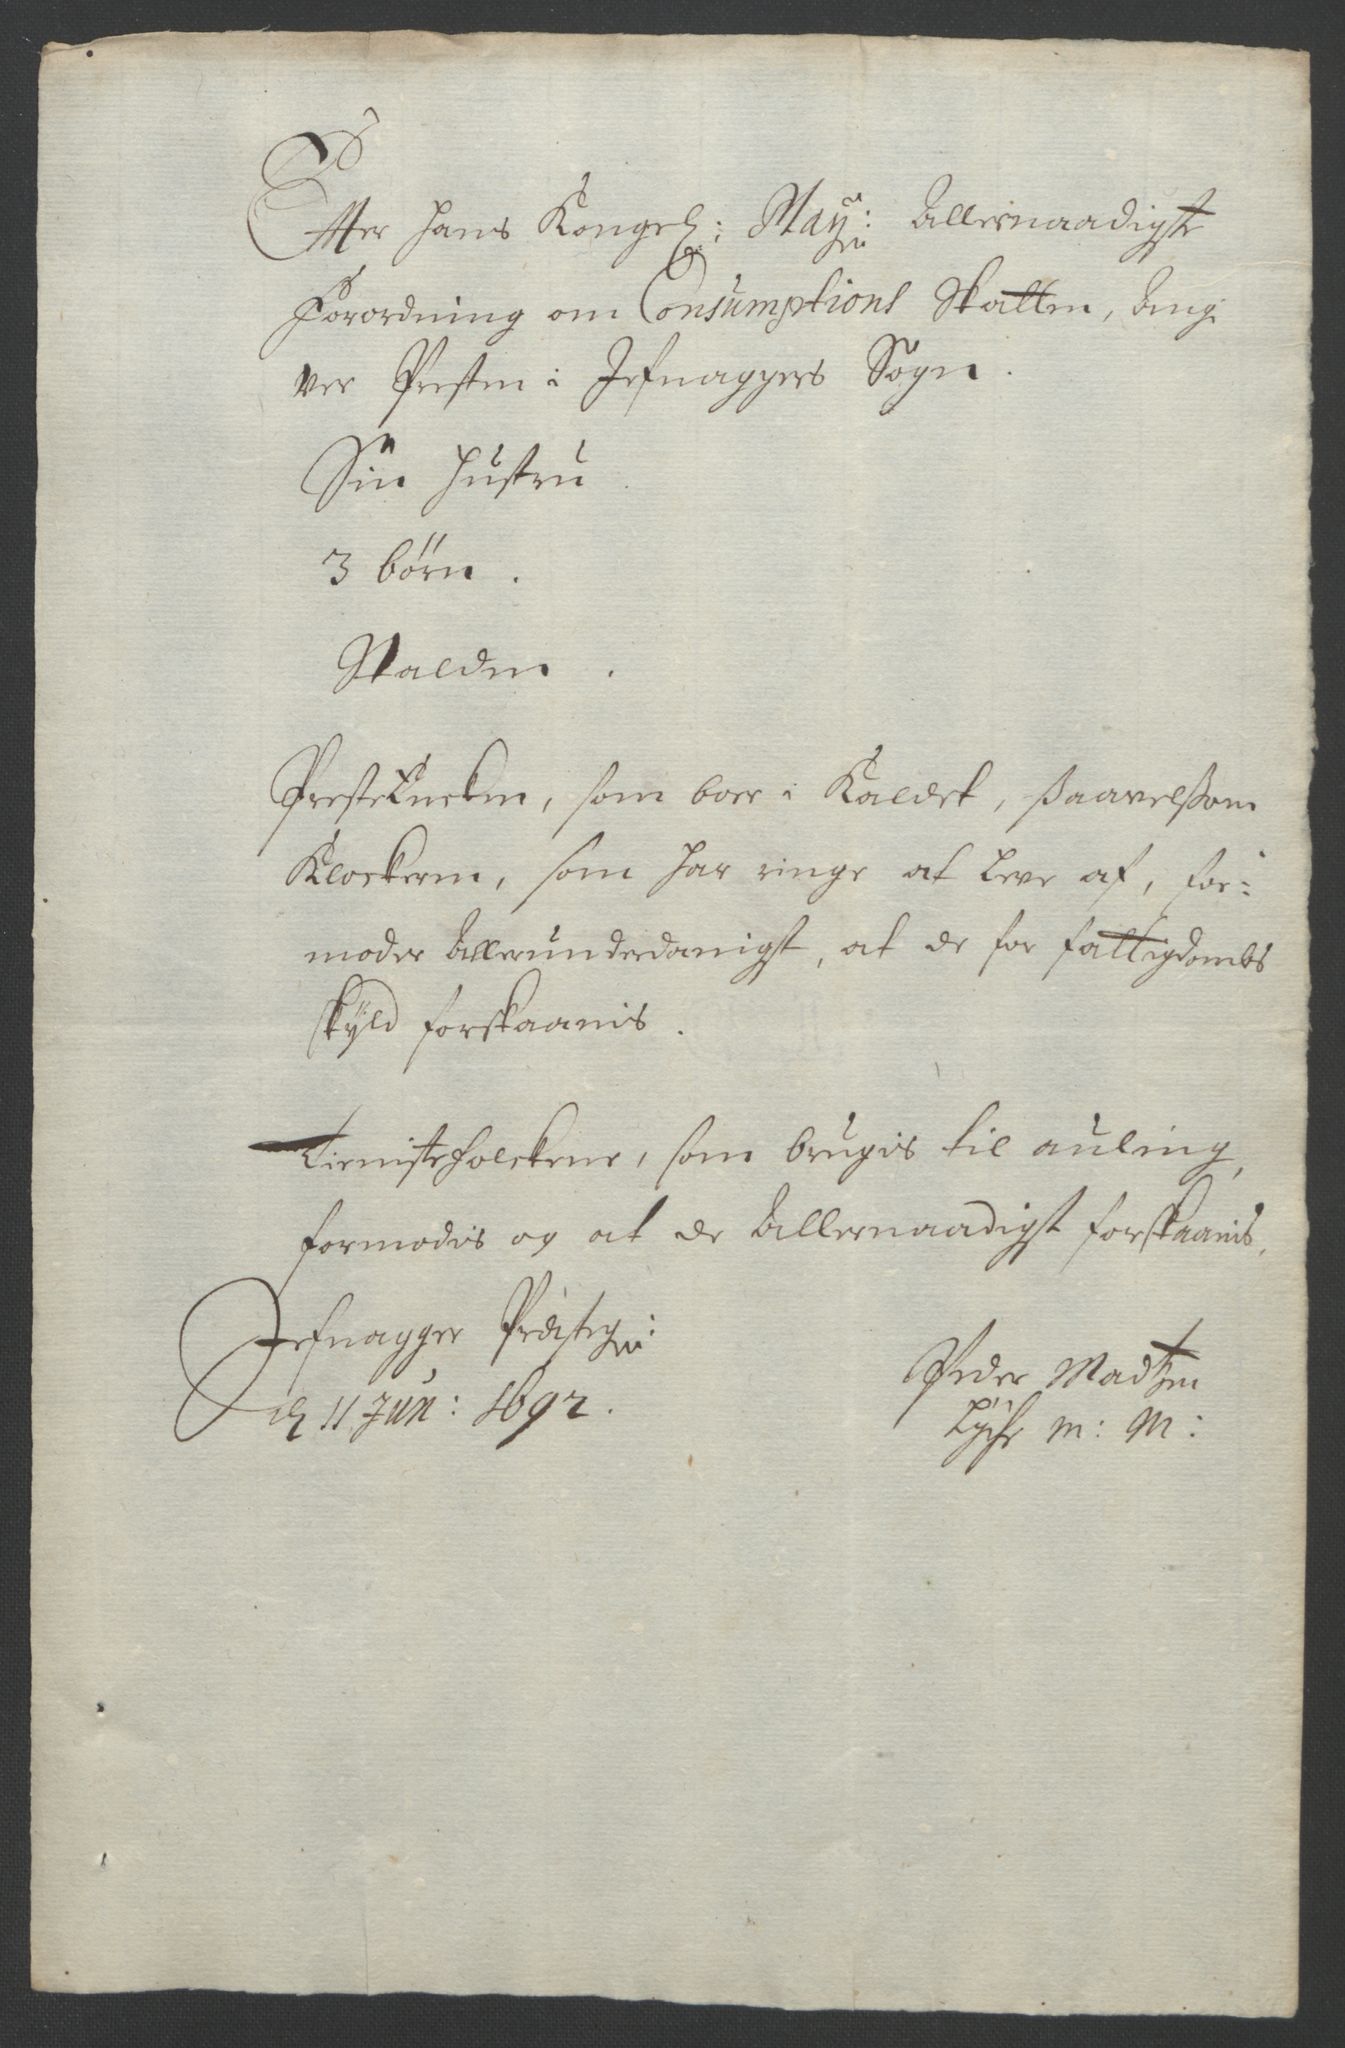 Effter hans Kongel: May: allernaadigste
Forordning om Consumptions Skatten, angi
ver Presten i Jefnaggers Sogn.
Sin hustru.
3 börn.
Skalden.
Presteencken, som boer i Kaldet, saavelsom
Klockeren, som har ringe at leve af, for=
moder allerunderdanigst, at de for fattigdombs
skÿld forskaanis.
Tienistefolckene, som brugis til auling,
formodis og at de allernaadigst forskaanis.
Jefnagger Præsteg:
d 11 Jun: 1692.
Peder Madtzen
Lÿche m: M: